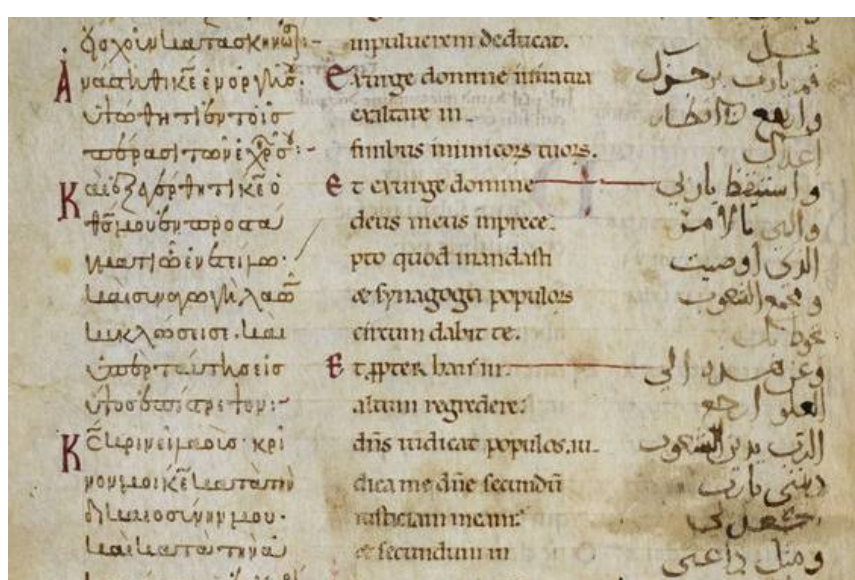 χοῦν κατασκηνώσ:-
Ἀνάστηθι κε ἐν ὀργῇ σου·
ὑψώθητι ἐν τοῖς
πέρασι τῶν ἐχθρῶν σου:-
Καὶ ἐξεγέρθητι κε ὁ
θς μου ἐν προστά
γματι ᾧ ἐνετίλω·
καὶ συναγωγὴ λαῶν
κυκλώσει σε· καὶ
ὑπὲρ ταύτης εἰς
ὕψος ἐπίστρεψον:
Κς κρινεῖ λαούς· κρι
νόν μοι κε κατὰ τὴν
δικαιοσύνην μου·
καὶ κατὰ τὴν ἀ
inpulverem deducat.
Exurge domine inira tua
exaltare in
finibus inimicors tuors.
Et exurge domine
deus meus inprece
pto quod mandasti
et synagoga populors
circum dabit te.
Et ꝓpter hanc in
altum regredere.
dns iudicat populos. iu
dica me dne secundu
iusticiam meam.
et secundum in
قم يارب
وارتفع في اقطار
اعدائك
واستيقظ يا ربي
والهي بالامر
الذي اوصيت
ومجمع الشعوب
تحوط بك
وعن هذه الي
العلو ارجع
الرب يدين الشعوب
دينني يا رب
ومثل